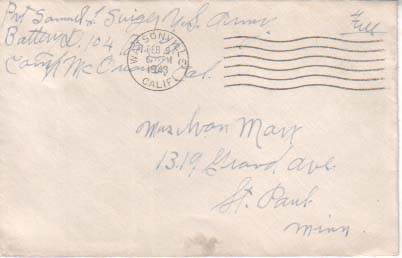 Pvt Samuel L. Singer U.S. Army
Free
Battery D. 104
Camp McQuaide Cal.
WATSONVILLE
FEB 9
PM
1943
CALIF.
Mrs Ivan Marx
1319 Grand Ave
St. Paul
Minn.